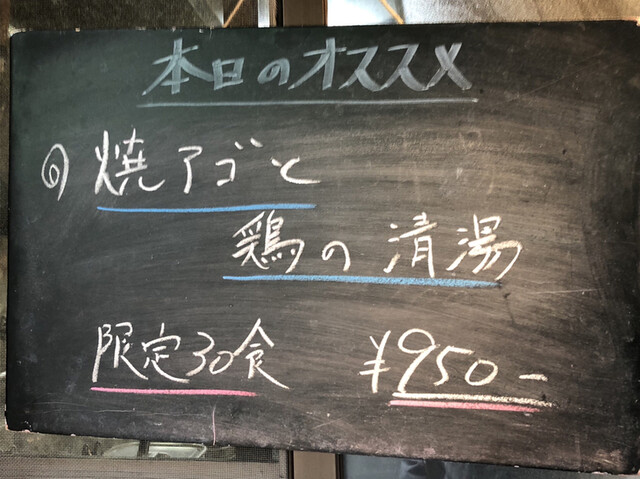 本日のオススメ
焼アゴと
鶏の清湯
限定30食 ¥950-